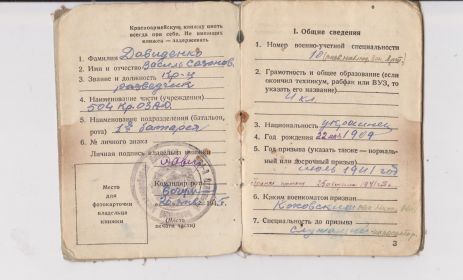 Красноармейскую книжку иметь
всегда при себе. Не имеющих
книжек — задерживать
1. Фамилия Давиденко
2. Имя и отчество Василь Сазонов.
3. Звание и должность Кр-ц
разведчик
4. Наименование части (учреждения)
504 Кр.ОЗАД
5. Наименование подразделения (батальон,
рота) 1я батарея
6. № личного знака
Личная подпись владельца книжки
Место
для
фотокарточки
владельца
книжки
Командир роты
(Место
печати части)
I. Общие сведения
1. Номер военно-учетной специальности
10
2. Грамотность и общее образование (если
окончил техникум, рабфак или ВУЗ, то
указать его название)
4 кл.
3. Национальность украинец
4. Год рождения 1909
5. Год призыва (указать также — нормаль-
ный или досрочный призыв)
июль 1941 год
6. Каким военкоматом призван
7. Специальность до призыва
служащий
3